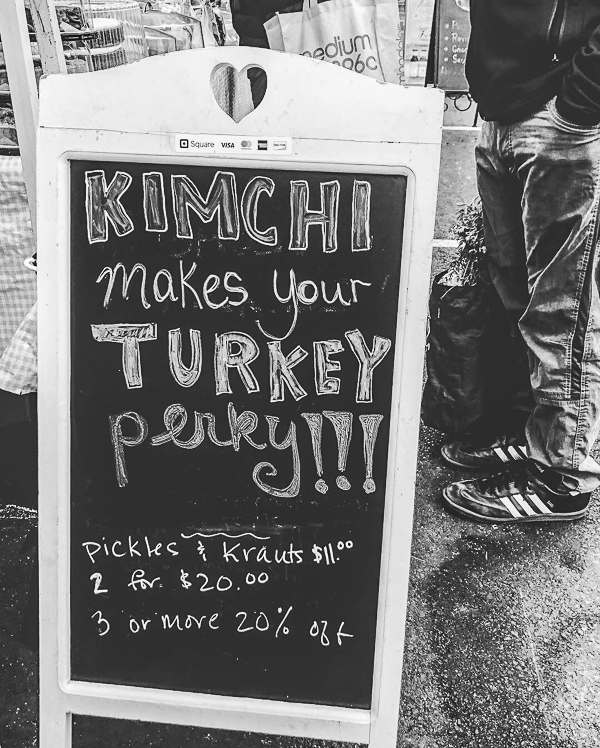 medium
Square VISA
KIMCHI
makes your
TURKEY
perky!!!
pickles & Krauts $11.00
2 for $20.00
3 or more 20% off